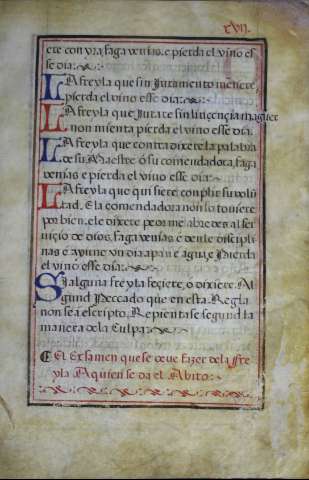 xvij.
ete con yra, faga venias, e pierda el vino es
se dia:
La freyla que sin Juramento mentiere,
pierda el vino esse dia:
La freyla que Jurare sin licencia, maguer
non mienta pierda el vino esse dia.
La freyla que contradixere la palabra
de su Maestre o su comendadora, faga
venias e pierda el vino esse dia:
La freyla que quisiere conplir su volū
tad, E la comendadora non lo toviere
por bien, e le dixere peor me abredes al ser
uiçio de dios, faga venias e denle disciplí
nas e ayune vn dia a pan e agua, e Pierda
el vino esse dia:
Si alguna freyla feçiere, o dixere. Al
gund Peccado que en esta Regla
non sea escripto, Repientase segund la
manera dela Culpa:
El Examen que se deue fazer dela fre
yla A quien se da el Abito: